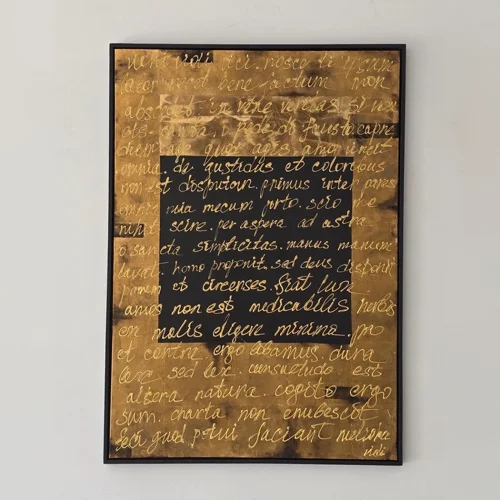 veni vidi vici. nosce te ipsum
acer nicet bene factum. non
absit. in vino veritas. si vis
festo. capre
diem. age quod agis. amor vincit
omnia. de gustibus et coloribus
non est disputan. primus inter pares
omnia mia mecum porto. scio me
nihil scire. per aspera ad astra
o. sancta simplicitas. manus manum
lavat. homo proponit. sed deus disponit
panem et circenses. fiat lux
amos non est medicabilis herbis
em malis eligere minima. pro
et contra ergo bibamus. dura
lex. sed lex. consuetudo est
altera natura. cogito ergo
sum. charta non erubescit
feci quod potui faciant meliora
vidi